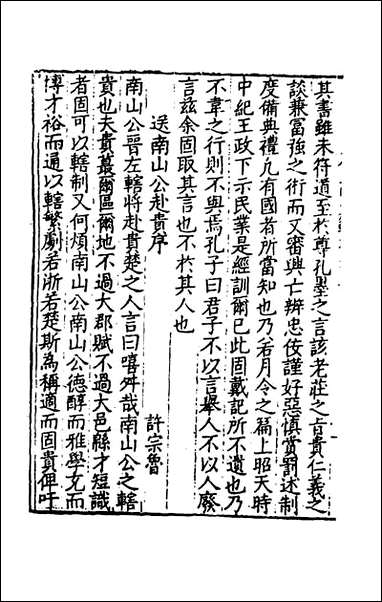 其書雖未符道至於尊孔墨之言該老莊之旨貴仁義之
談兼富強之術而又審興亡辨忠佞謹好惡慎賞罰述制
度備典禮凡有國者所當知也乃若月令之篇上昭天時
中紀王政下示民業是經訓爾已此固戴記所不遺也乃
不韋之行則不與焉孔子曰君子不以言舉人不以人廢
言茲余固取其言也不於其人也
送南山公赴貴序
許宗魯
南山公晉左轄將赴貴楚之人言曰嘻舛哉南山公之轄
貴也夫貴蕞爾區爾地不過大郡賦不過大邑縣才短識
者固可以轄制又何煩南山公南山公德醇而雅學充而
博才裕而通以轄繁劇若浙若楚斯為稱適而固貴俾吁